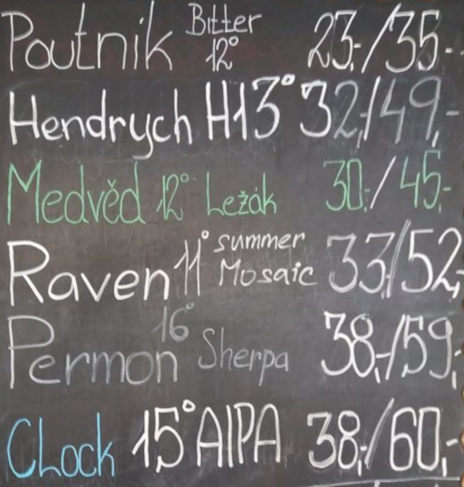 Poutnik Bitter 12° 23,-/35,-
Hendrych H13° 32,/49,-
Medvěd 12° Ležák 30,-/45,-
Raven 11° summer Mosaic 33,/52,
Permon 16° Sherpa 38,-/59,-
CLock 15° AIPA 38,-/60,-